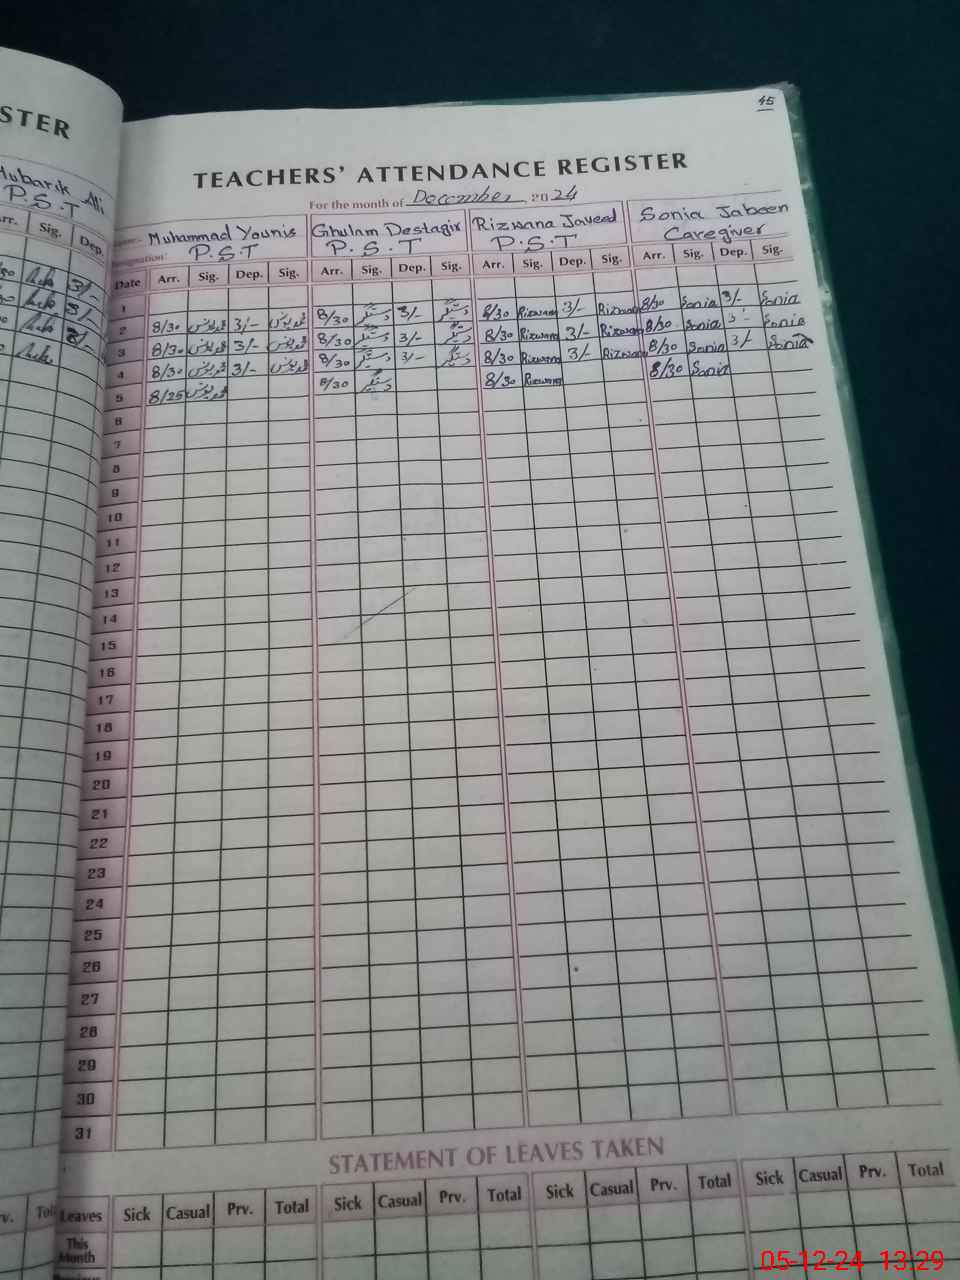 45
STER
TEACHERS' ATTENDANCE REGISTER
For the month of December 2024
Mubarik Ali
P.S.T
Muhammad Younis Ghulam Destagir Rizwana Javeed Sonia Jabeen
P.S.T P.S.T P.S.T Caregiver
Sig. Dep.
Date Arr. Sig. Dep. Sig. Arr. Sig. Dep. Sig. Arr. Sig. Dep. Sig. Arr. Sig. Dep. Sig.
1
2 8/30 3/- 8/30 3/- 8/30 Rizwana 3/- Rizwana 8/30 Sonia 3/- Sonia
3 8/30 3/- 8/30 3/- 8/30 Rizwana 3/- Rizwana 8/30 Sonia 3/- Sonia
4 8/30 3/- 8/30 3/- 8/30 Rizwana 3/- Rizwana 8/30 Sonia 3/- Sonia
5 8/25 8/30 8/30 Rizwana 8/30 Sonia
6
7
8
9
10
11
12
13
14
15
16
17
18
19
20
21
22
23
24
25
26
27
28
29
30
31
STATEMENT OF LEAVES TAKEN
Leaves Sick Casual Prv. Total Sick Casual Prv. Total Sick Casual Prv. Total Sick Casual Prv. Total
This
Month
05-12-24 13:29